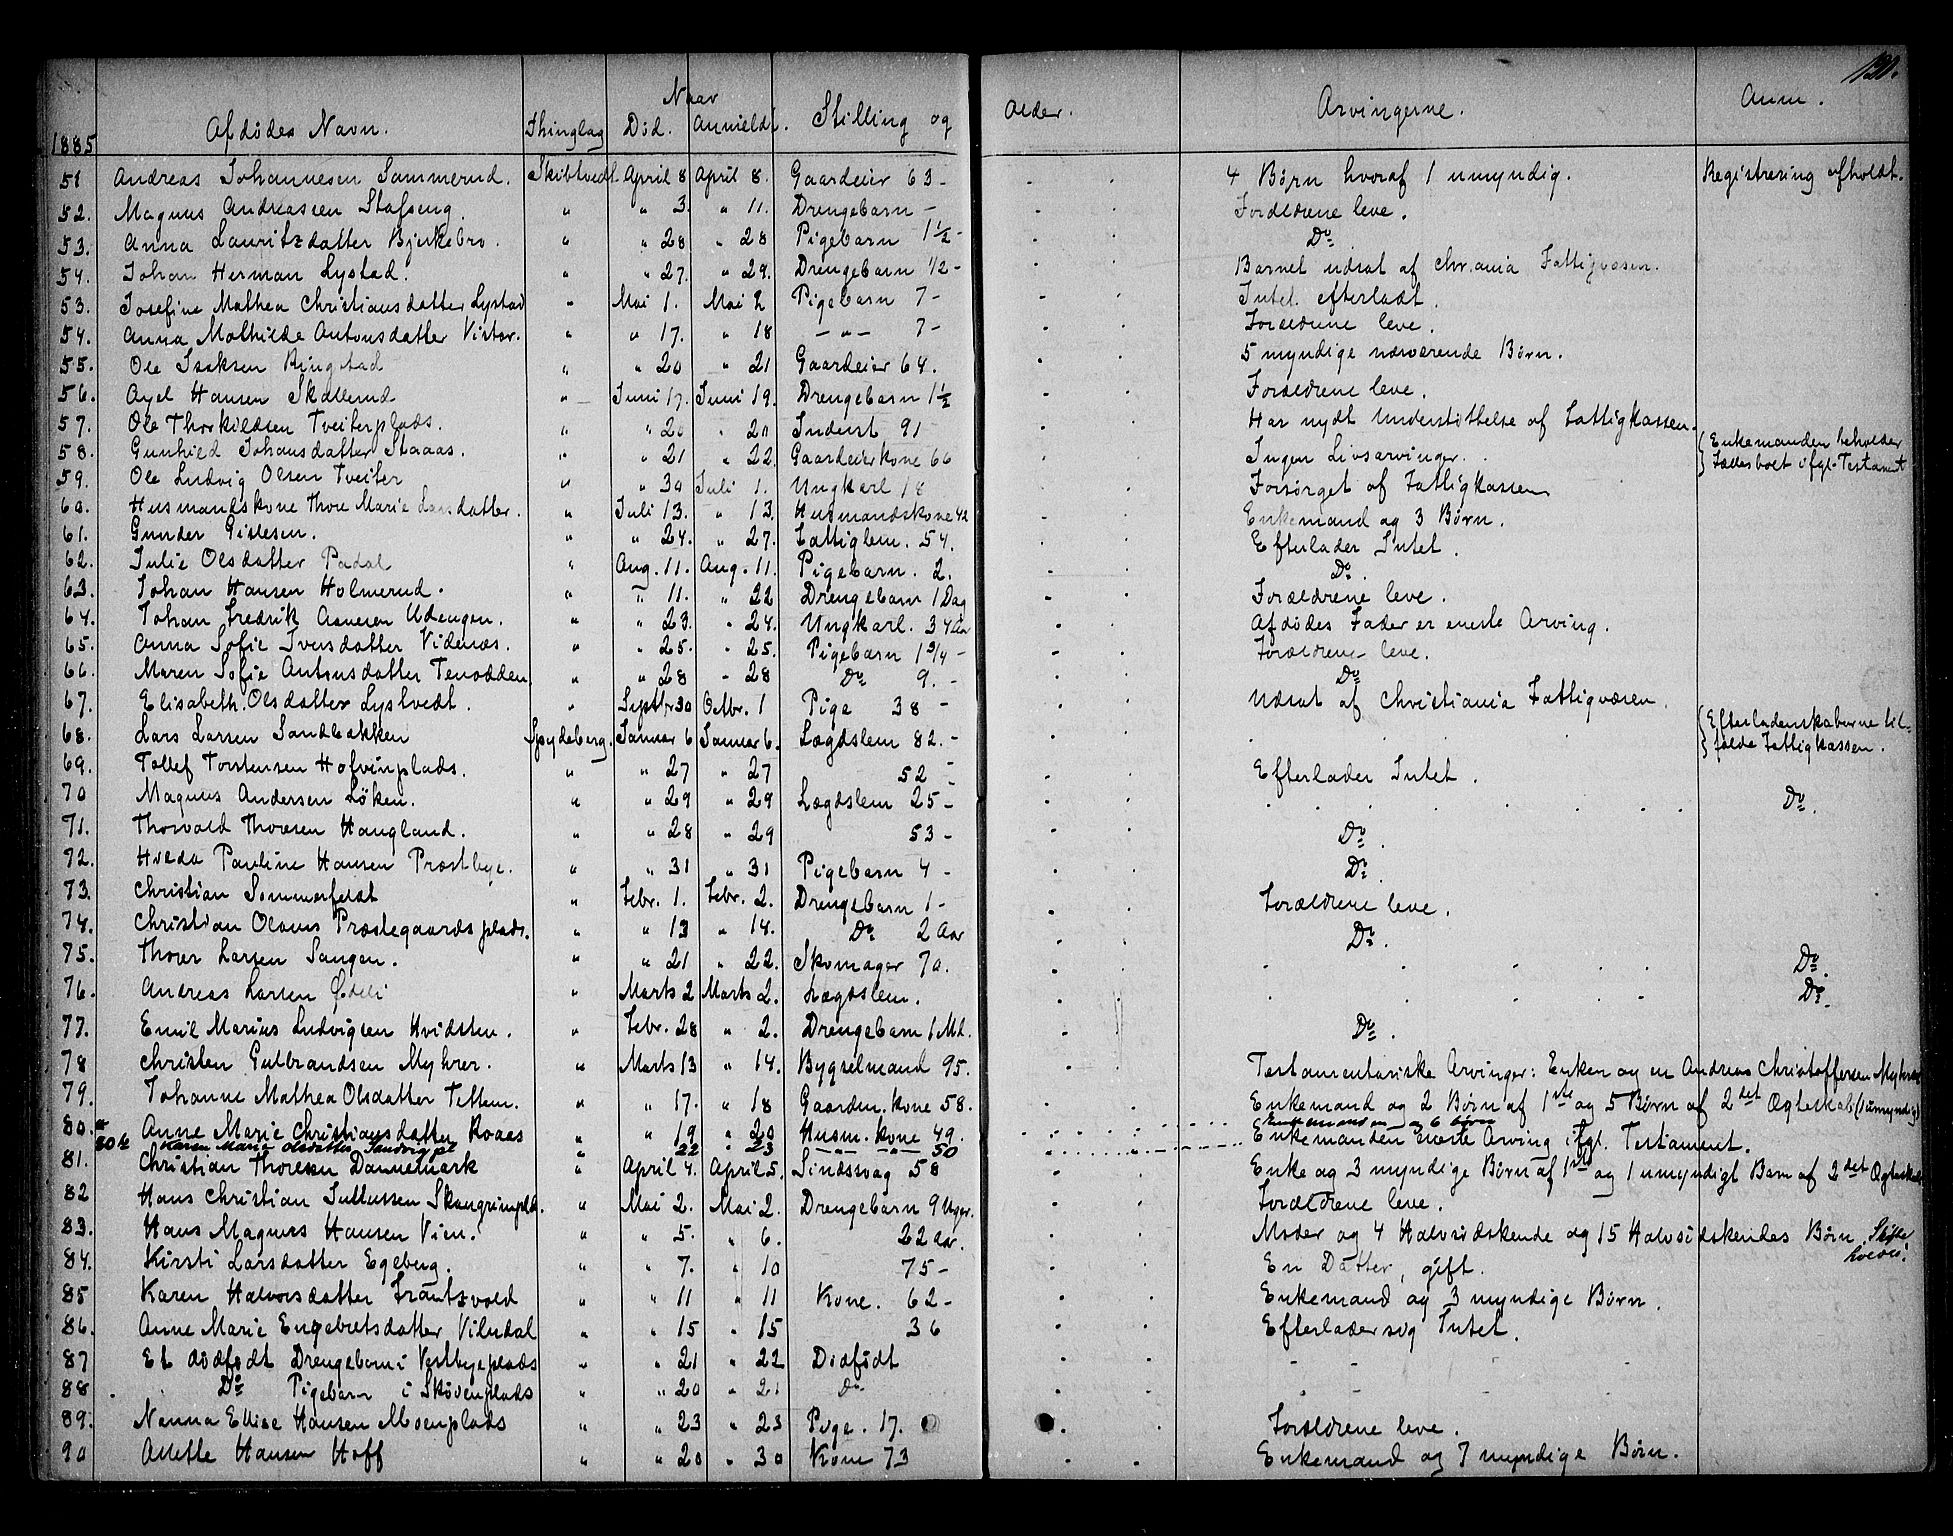 130.
Naar
1885 Afdødes Navn. Thinglag Død. Anmeldt. Stilling og Alder. Arvingerne. Anm.
51 Andreas Johannesen Sammerud. Skibtvedt April 8 April 8. Gaardeier 63 - 4 Børn hvoraf 1 umyndig. Registrering afholdt.
52. Magnus Andreassen Stafseng. " " 3. " 11. Drengebarn - Forældrene leve.
53. Anna Lauritzdatter Bjerkebro. " " 28 " 28 Pigebarn 1½ - Do
54. Johan Herman Lystad. " " 27. " 29. Drengebarn 1/2 - Barnet udsat af Chr.ania Fattigvæsen.
53. Josefine Mathea Christiansdatter Lystad " Mai 1. Mai 2 Pigebarn 7 - Intet efterladt.
54. Anna Mathilde Antonsdatter Vister. " " 17. " 18 - " - 7 - Forældrene leve.
55. Ole Isaksen Ringstad " " 20 " 21 Gaardeier 64. 5 myndige nærværende Børn.
56. Axel Hansen Skallerud " Juni 17. Juni 19. Drengebarn 1½ Forældrene leve.
57. Ole Thorkildsen Tveiterplads. " " 20 " 20 Inderst 91 Har nydt Understøttelse af Fattigkassen.
58. Gunhild Johansdatter Staaas. " " 21 " 22 Gaardeierkone 66 Ingen Livsarvinger. { Enkemanden beholder
Fællesboet ifgl. Testament
59. Ole Ludvig Olsen Tveiter " " 30 Juli 1. Ungkarl 18 Forsørget af Fattigkassen
60. Husmandskone Thore Marie datter. " Juli 13. " 13. Husmandskone 42 Enkemand og 3 Børn.
61. Gunder Gislesen. " " 24. " 27. Fattiglem. 54. Efterlader Intet.
62. Julie Olsdatter Padal " Aug. 11. Aug. 11. Pigebarn. 2. Do.
63. Johan Hansen Holmerud. " " 11. " 22 Drengebarn 1 Dag Forældrene leve.
64. Johan Fredrik Udengen. " " 23. " 24. Ungkarl. 34 Aar Afdødes Fader er eneste Arving.
65. Anna Sofie Iversdatter Videnæs. " " 25. " 25. Pigebarn 1 3/4 - Forældrene leve.
66. Maren Sofie Antonsdatter Tenodden " " 28 " 28 Do 9. - Do
67. Elisabeth Olsdatter Lystvedt. " Septbr 30 Octbr. 1 Pige 38 - Udsat af Christiania Fattigvæsen.
68. Lars Larsen Sandbakken Spydeberg. Januar 6 Januar 6. Lægdslem 82. - { Efterladenskaberne til-
falde Fattigkassen.
69. Tollef Torstensen Hofvinplads. " " 27 " 27 52 - Efterlader Intet.
70 Magnus Andersen Löken. " " 29 " 29 Lægdslem 25 - Do.
71. Thorvald Thoresen Haugland. " " 28 " 29 53 - Do.
72. Hulda Pauline Hansen Præstbye. " " 31 " 31 Pigebarn 4 - Do.
73. Christian Sommerfeldt " Febr. 1. Febr. 2. Drengebarn 1 - Forældrene leve.
74. Christian Olaves Præstegaardsplads. " " 13 " 14. Do 2 Aar Do.
75. Thorer Larsen Sangen. " " 21 " 22. Skomager 70. Do.
76. Andreas Larsen Ødeli " Marts 2 Marts 2. Lægdslem. Do.
77. Emil Marius Ludvigsen Hvidsten. " Febr. 28 " 2. Drengebarn 1 Md. Do.
78 Christen Gulbrandsen Myhrer. " Marts 13 " 14. Bygselmand 95. Testamentariske Arvinger: Enken og en Andreas Christoffersen Myhrer
79. Johanne Mathea Olsdatter Tettem. " " 17. " 18 Gaardm. kone 58. Enkemand og 2 Børn af 1ste og 5 Børn af 2det Ægteskab (1 umyndig)
80.a Anne Marie Christiansdatter Kvaas " " 19 " 20 Husm. kone 49. Enkemanden eneste Arving ifgl. Testament.
80 b Karen Marie Olsdatter Sandvig pl " 22 " 23 - " - 50 Enkemanden og 6 børn
81. Christian Thoresen Dannemark " April 4. April 5. Sindssvag 58 Enke og 3 myndige Børn af 1ste og 1 umyndigt Barn af 2det Ægteskab
82 Hans Christian Juliussen Skaugrimpld. " Mai 2. Mai 2. Drengebarn 9 Uger. Forældrene leve.
83. Hans Magnus Hansen Vien. " " 5. " 6. 22 Aar. Moder og 4 Halvsødskende og 15 Halvsødskendes Børn. Skifte
84. Kirsti Larsdatter Egeberg. " " 7. " 10 75 - En Datter, gift.
85 Karen Halvorsdatter Frantzvold " " 11 " 11 Kone. 62 - Enkemand og 3 myndige Børn.
86. Anne Marie Engebretsdatter Vilndal " " 15 " 15 36 Efterlader sig Intet.
87 Et dødfødt Drengebarn i Vestbyeplads " " 21 " 22 Dødfødt
88 Do Pigebarn i Skövenplads " " 20 " 21 Do
89. Nanna Elise Hansen Moenplads " " 23 " 23 Pige. 17. Forældrene leve.
90 Anette Hansen Hoff " " 20 " 30 Kone 73 Enkemand og 7 myndige Børn.